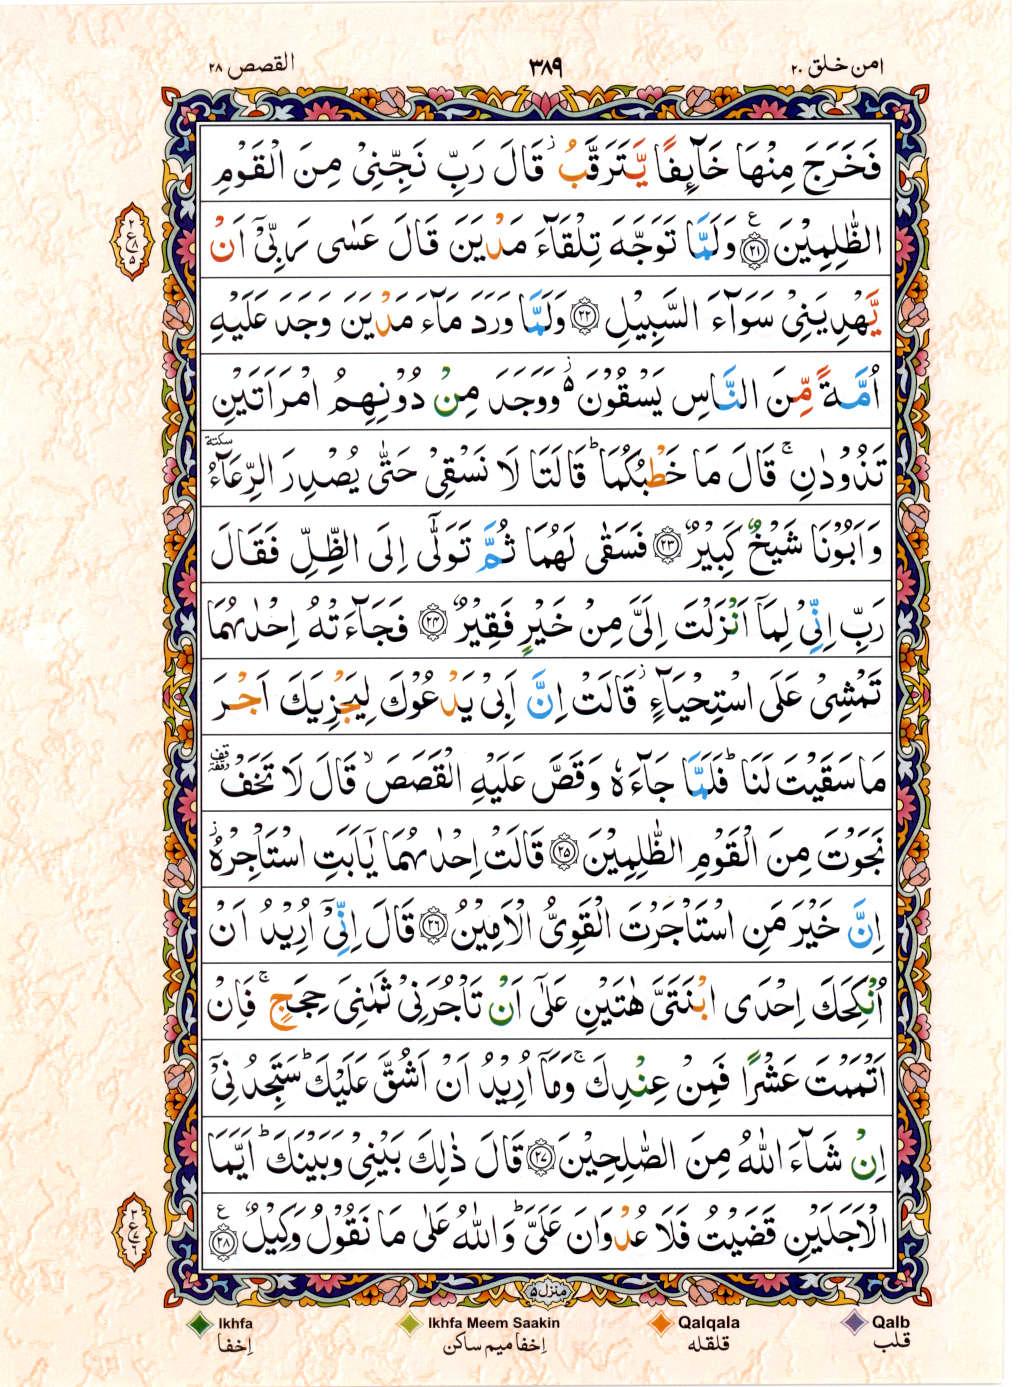 امن خلق ۲۰
۳۸۹
القصص ۲۸
فَخَرَجَ مِنْهَا خَآىِٕفًا یَّتَرَقَّبُ ؗ قَالَ رَبِّ نَجِّنِیْ مِنَ الْقَوْمِ
الظّٰلِمِیْنَ ﴿۲۱﴾ ع وَلَمَّا تَوَجَّهَ تِلْقَآءَ مَدْیَنَ قَالَ عَسٰی رَبِّیْۤ اَنْ
یَّهْدِیَنِیْ سَوَآءَ السَّبِیْلِ ﴿۲۲﴾ وَلَمَّا وَرَدَ مَآءَ مَدْیَنَ وَجَدَ عَلَیْهِ
اُمَّةً مِّنَ النَّاسِ یَسْقُوْنَ ؗ۬ وَوَجَدَ مِنْ دُوْنِهِمُ امْرَاَتَیْنِ
تَذُوْدٰنِ ۚ قَالَ مَا خَطْبُكُمَا ؕ قَالَتَا لَا نَسْقِیْ حَتّٰی یُصْدِرَ الرِّعَآءُ سكتة
وَاَبُوْنَا شَیْخٌ كَبِیْرٌ ﴿۲۳﴾ فَسَقٰی لَهُمَا ثُمَّ تَوَلّٰۤی اِلَی الظِّلِّ فَقَالَ
رَبِّ اِنِّیْ لِمَاۤ اَنْزَلْتَ اِلَیَّ مِنْ خَیْرٍ فَقِیْرٌ ﴿۲۴﴾ فَجَآءَتْهُ اِحْدٰىهُمَا
تَمْشِیْ عَلَی اسْتِحْیَآءٍ ؗ قَالَتْ اِنَّ اَبِیْ یَدْعُوْكَ لِیَجْزِیَكَ اَجْرَ
مَا سَقَیْتَ لَنَا ؕ فَلَمَّا جَآءَهٗ وَقَصَّ عَلَیْهِ الْقَصَصَ ۙ قَالَ لَا تَخَفْ قف وقفة
نَجَوْتَ مِنَ الْقَوْمِ الظّٰلِمِیْنَ ﴿۲۵﴾ قَالَتْ اِحْدٰىهُمَا یٰۤاَبَتِ اسْتَاْجِرْهُ ؗ
اِنَّ خَیْرَ مَنِ اسْتَاْجَرْتَ الْقَوِیُّ الْاَمِیْنُ ﴿۲۶﴾ قَالَ اِنِّیْۤ اُرِیْدُ اَنْ
اُنْكِحَكَ اِحْدَی ابْنَتَیَّ هٰتَیْنِ عَلٰۤی اَنْ تَاْجُرَنِیْ ثَمٰنِیَ حِجَجٍ ۚ فَاِنْ
اَتْمَمْتَ عَشْرًا فَمِنْ عِنْدِكَ ۚ وَمَاۤ اُرِیْدُ اَنْ اَشُقَّ عَلَیْكَ ؕ سَتَجِدُنِیْۤ
اِنْ شَآءَ اللّٰهُ مِنَ الصّٰلِحِیْنَ ﴿۲۷﴾ قَالَ ذٰلِكَ بَیْنِیْ وَبَیْنَكَ ؕ اَیَّمَا
الْاَجَلَیْنِ قَضَیْتُ فَلَا عُدْوَانَ عَلَیَّ ؕ وَاللّٰهُ عَلٰی مَا نَقُوْلُ وَكِیْلٌ ﴿۲۸﴾ ع
منزل ۵
Ikhfa
اِخفا
Ikhfa Meem Saakin
اِخفا میم ساکن
Qalqala
قلقله
Qalb
قلب